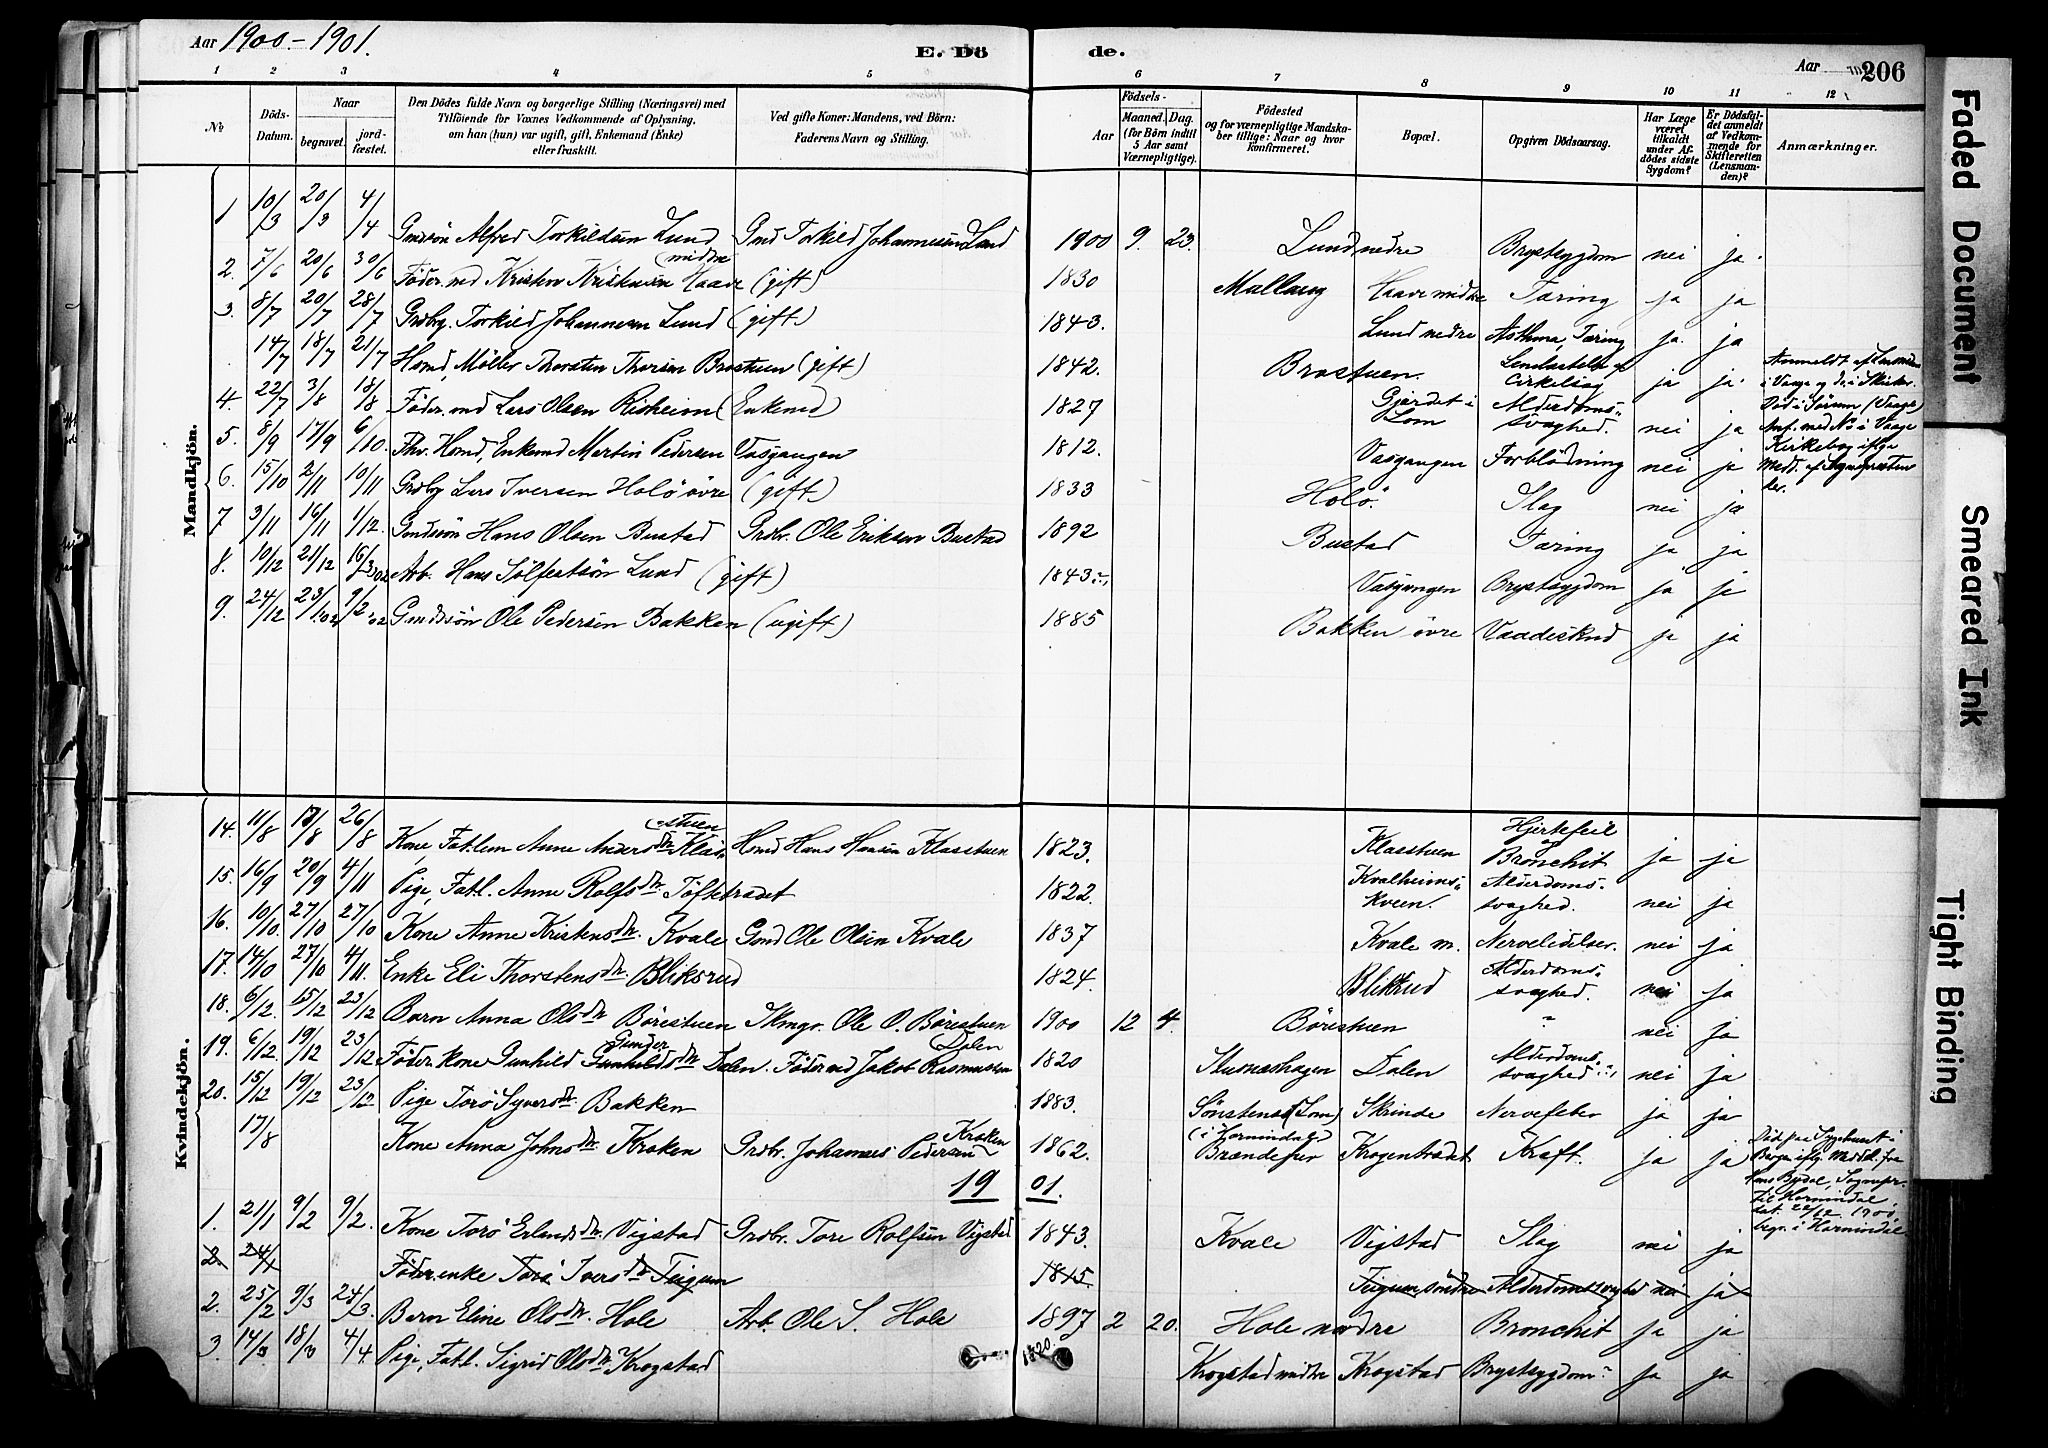 Aar 1900.-1901.
E. Döde.
Aar 206
1 2 3 4 5 6 7 8 9 10 11 12
No
Döds-Datum.
Naar
begravet.
jord-fæstet.
Den Dödes fulde Navn og borgerlige Stilling (Næringsvei) med
Tilföiende for Voxnes Vedkommende af Oplysning,
om han (hun) var ugift, gift, Enkemand (Enke)
eller fraskilt.
Ved gifte Koner: Mandens, ved Börn:
Faderens Navn og Stilling.
Födsels-
Aar
Maaned. Dag.
(for Börn indtil
5 Aar samt
Værnepligtige).
Födested
og for værnepligtige Mandska-
ber tillige: Naar og hvor
konfirmeret.
Bopæl.
Opgiven Dödsaarsag.
Har Læge
været
tilkaldt
under Af-
dödes sidste
Sygdom?
Er Dödsfal-
det anmeldt
af Vedkom-
mende for
Skifteretten
(Lensman-
den)?
Anmærkninger.
Mandkjön.
1 10/3 20/3 4/4 Gmdsön Alfred Torkildsen Lund Gmd Torkild Johannesen Lund 1900 9 23. Lund nedre Brystsygdom nei ja.
2. 7/6 20/6 30/6 Föder.md Kristen Kristensen Haave midtre (gift) 1830 Haave midtre Tæring ja ja
3. 8/7 20/7 28/7 Grdbr. Torkild Johannesen Lund (gift) 1843. Lund nedre Asthma, Tæring ja. ja
14/7 18/7 21/7 Hmd, Möller Thorsten Thorsen Brostuen (gift) 1842. Brostuen. Cirkelsag ja ja.
4. 22/7 3/8 18/8 Föder.md Lars Olsen Risheim (Enkemd) 1827 Gjerdet i Lom Alderdoms-svaghed. nei ja
5. 8/9 17/9 6/10. Fhv. Hmd, Enkemd Martin Pedersen Vasgangen 1812. Vasgangen Forblödning nei ja
6. 15/10 2/11 10/11 Grdbr Lars Iversen Holö övre (gift) 1833 Holö. Slag nei ja
7 3/11 16/11 1/12. Gmdssön Hans Olsen Bustad Grdbr. Ole Eriksen Bustad 1892 Bustad Tæring ja ja
8. 10/12 21/12 Arb. Hans Sölfestsön Lund (gift) 1843 Vasgangen Brystsygdom ja ja
9. 24/12 23/1.02 9/2 02 Gmdssön Ole Pedersen Bakken (ugift) 1885 Bakken övre Vaadeskud ja ja
Kvindekjön.
14. 11/8 26/8 Kone, Fatlem Anne Andersdtr. Klasstuen Hmd Hans Hansen Klasstuen 1823. Klasstuen Hjertefeil og Bronchit ja ja
15. 16/9 20/9 4/11 Pige, Fatl. Anne Rolfsdtr. Töftetrædet 1822. Kvalheims-kveen. Alderdoms-svaghed. nei ja
16. 10/10. 27/10 27/10 Kone Anne Kristensdtr. Kvale Gmd Ole Olsen Kvale 1837 Kvale m. Nervelidelser. nei ja
17. 14/10 27/10 4/11. Enke Eli Thorstensdtr. Bliksrud 1824. Bliksrud Alderdoms-svaghed. nei ja
18. 6/12. 15/12 23/12 Barn Anna Olsdtr Börestuen Skmgr. Ole O. Börestuen 1900 12 4. Börestuen ? nei ja
19. 6/12. 19/12 23/12 Föder.kone Gunhild Gunder dtr. Dalen. Föder.md Jakob Rasmussen Dalen 1820 Dalen Alderdoms-svaghed nei ja
20. 15/12 19/12 23/12 Pige Torö Syversdtr Bakken 1883. Sönstenes (Lom) Skrinde Nervefeber ja ja
17/8 Kone Anna Johnsdtr. Kroken Grdbr. Johannes Pedersen Kroken 1862. (i Hornindal) Krogentrædet Kræft. ja ja
1901.
1. 21/1 9/2 9/2. Kone Torö Erlandsdtr. Vigstad Grdbr. Tore Rolfsen Vigstad 1843. Kvale Vigstad Slag nei ja
2. 24/1 Föder.enke Torö Iversdtr Teigum 1815. Teigum söndre Alderdomssvaghed nei ja
2. 25/2 9/3 24/3. Barn Eline Olsdtr. Hole Arb. Ole S. Hole 1897 2 20. Hole nordre Bronchit ja ja
3. 14/3 18/3 4/4 Pige, Fatl. Sigrid Olsdtr. Krogstad 1820 Krogstad midtre Krogstad Brystsygdom ja ja
Faded Document
Smeared Ink
Tight Binding